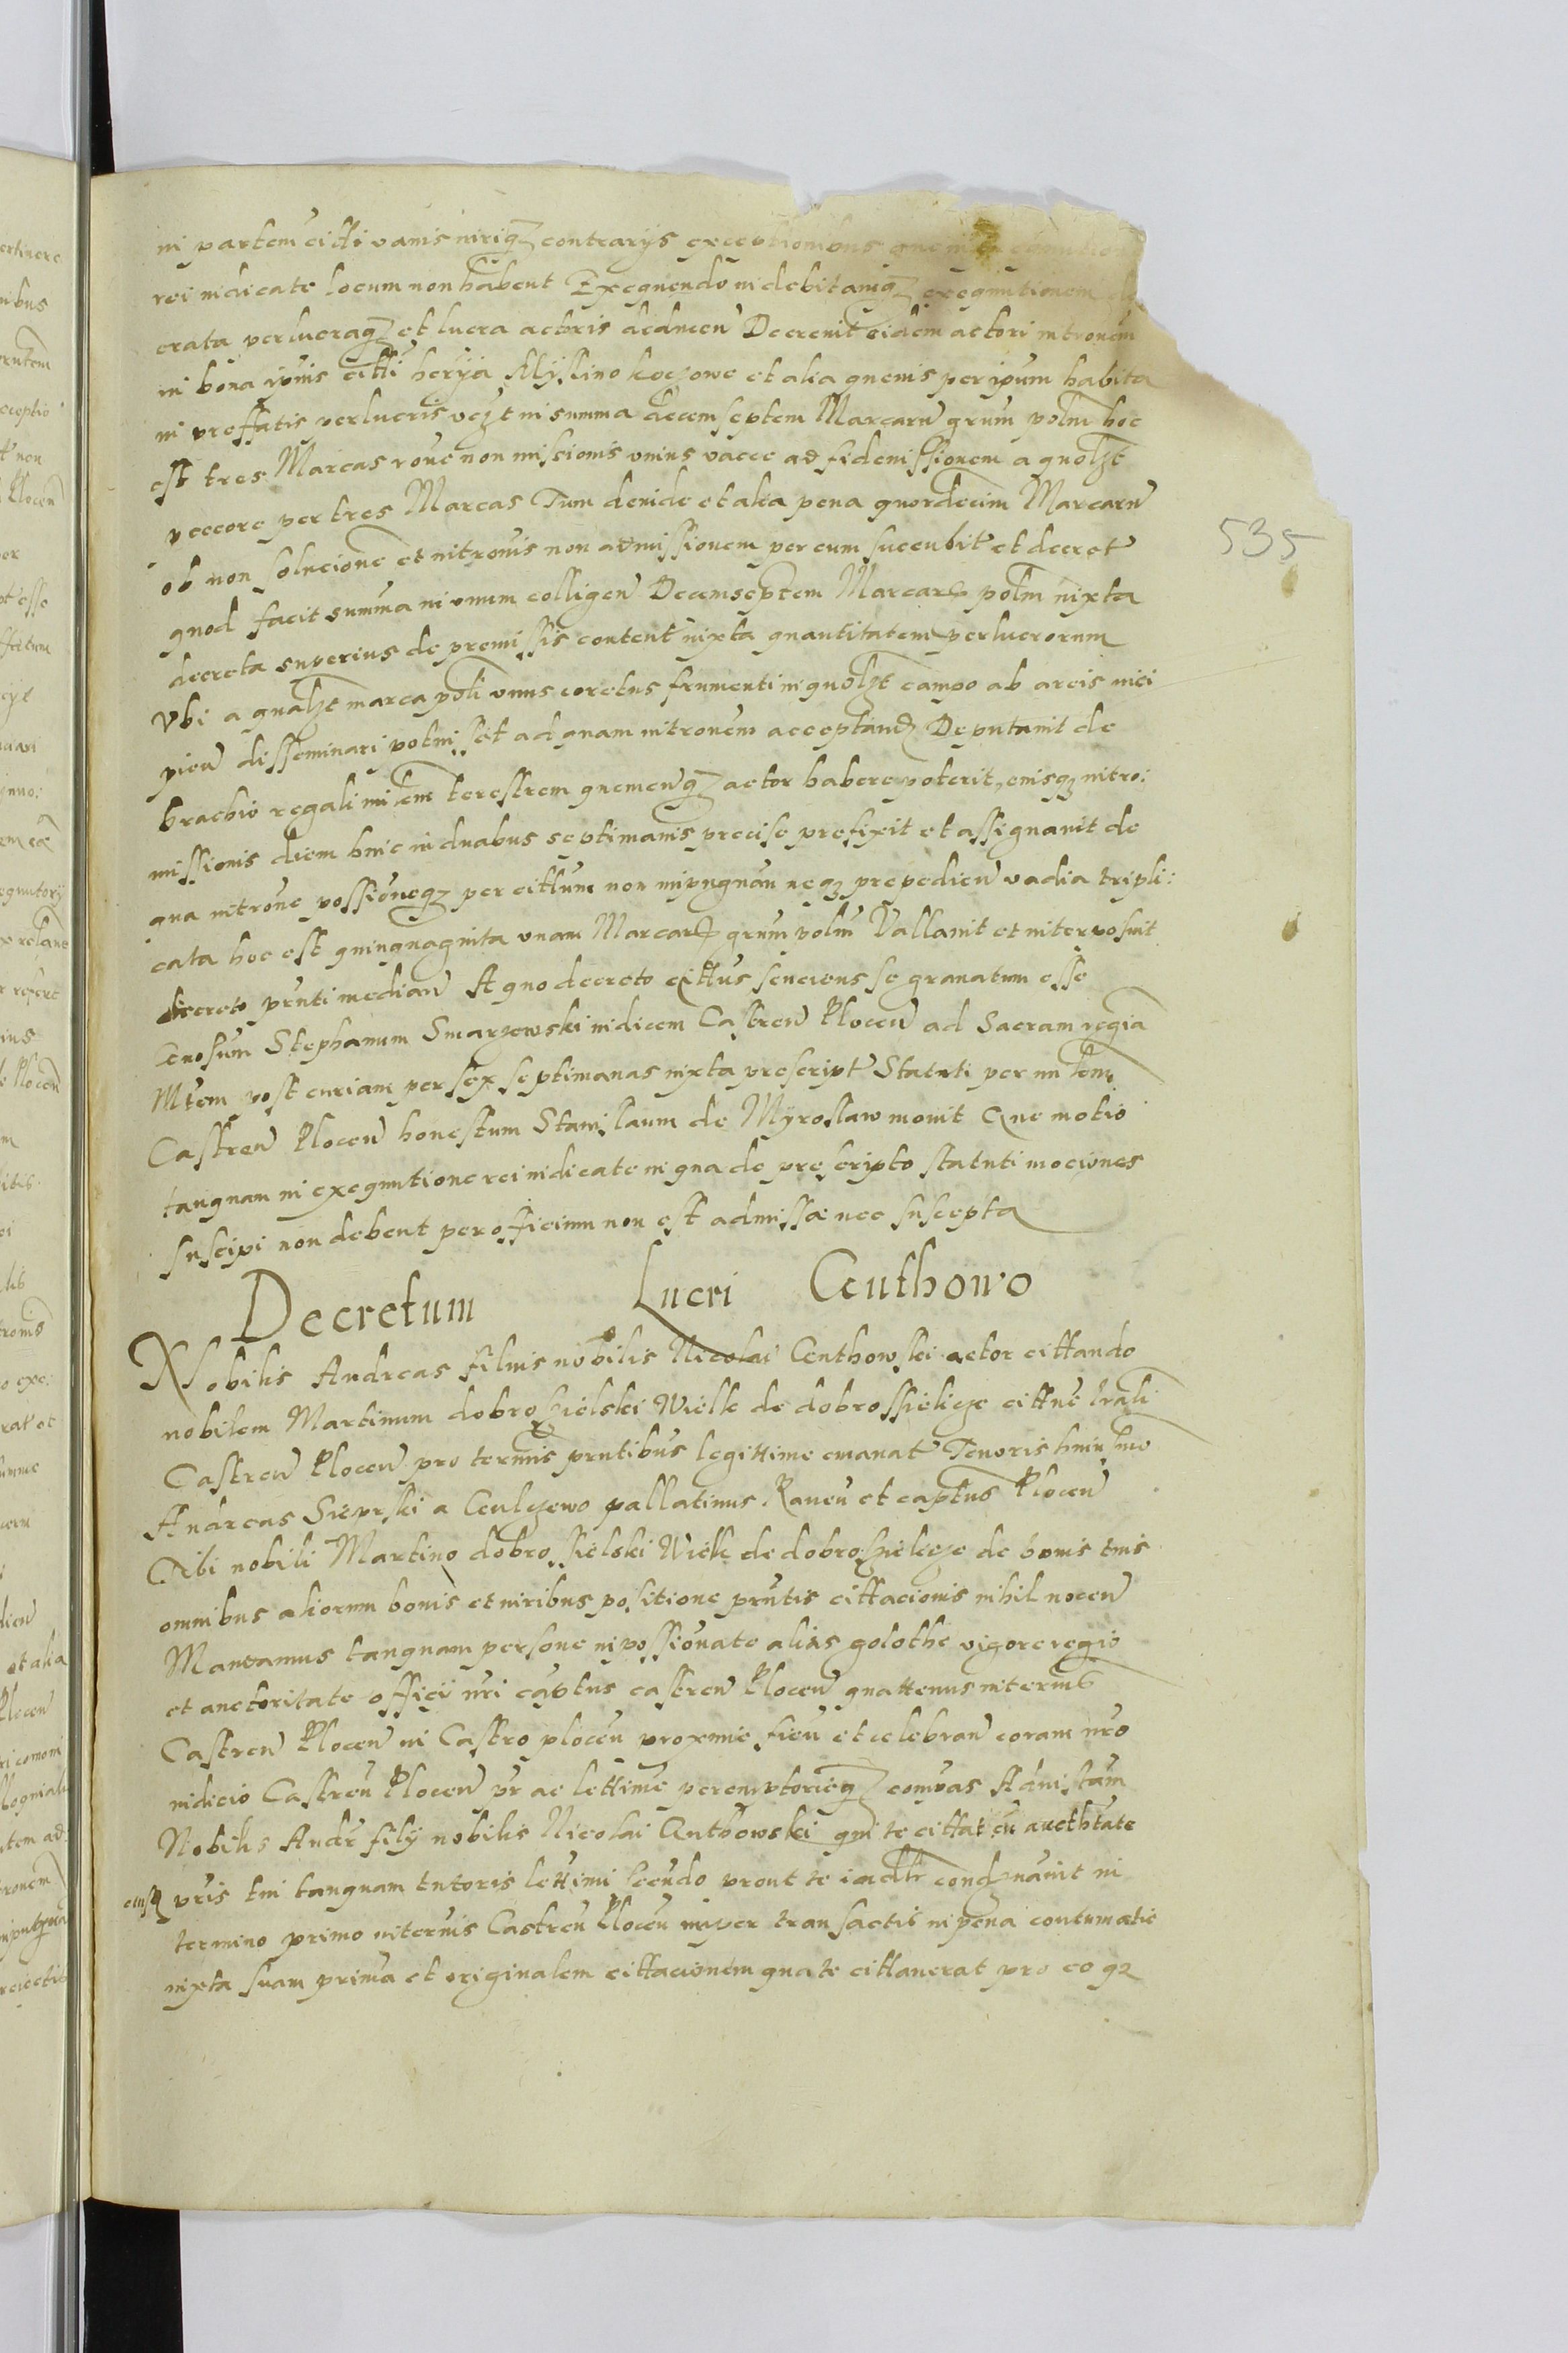 in partem citti vanis irisqz contrarijs exceptionibus que in
rei iudicate locum non habent Exequendo in debitamqz exequutionem
crata perlucraqz et lucra actoris deducen Decrevit eidem actori intronem
in bona ipius citti herija Mystino koczowe et alia quevis per ipum habita
in preffatis perlucris vczt in summa decem septem Marcaru grum polm hoc
est tres Marcas rone non missionis unius vacce ad fideiussionem a quolzt
peccore per tres Marcas Tum deinde et alia pena quordecim Marcaru
ob non solucione et introuis non admissionem per eum succubit et decret
quod facit summa in unum colligen Decemseptem Marcar polm iuxta
decreta superius de premissis content iuxta quantitatem perlucrorum
Vbi a qualzt marca poli unus coretus frumenti in quolzt campo ab areis inci
pien disseminari potuisset ad quam intronem acceptand Deputavit de
brachio regali mitem terestrem quemcunqz actor habere poterit, cuisqz intro:
missionis diem huic in duabus septimanis precise prefixit et assignavit de
qua introne possioneqz per cittum non inpugnan neqz prepedien vadia tripli:
cata hoc est quinquaginta unam Marcar grum polm Vallavit et interposuit
decreto prnti median A quo decreto cittus senciens se gravatum esse
Genosum Stephanum Smarzewski iudicem Castren Plocen ad Sacram regia
Mtem post curiam per sex septimanas iuxta prescript Statuti per mitem
Castren Plocen honestum Stanislaum de Myroslaw movit Que motio
tanquam in exequutione rei iudicate in qua de prescripto statuti mociones
suscipi non debent per officium non est admissa nec suscepta
Decretum Lucri Centhowo
Nobilis Andreas filius nobilis Nicolai Centhowski actor cittando
nobilem Martinum dobrosielski Wielk de dobrossielicze cittne lrali
Castren Plocen pro termis prntibus legittime emanat Tenoris huiusmo
Andreas Sieprski a Gulczewo pallatinus Raven et captus Plocen
Tibi nobili Martino dobrossielski Wielk de dobrosielicze de bonis tuis
omnibus aliorum bonis et iuribus positione prntis cittacionis nihil nocen
Mandamus tanquam persone inpossionate alias golothe vigore regio
et auctoritate officii nri captus castren Plocen quattenus in termis
Castren Plocen in Castro plocen proxime fien et celebran coram nro
iudicio Castren Plocen pr ac lettime peremptorieqz compas Ad instam
Nobilis Andr filij nobilis Nicolai Cuthowski qui te cittat cu aucthtate
eiusd pris tui tanquam tutoris lettimi Ccendo prout te iudlr condznavit in
termino primo in termis Castren Plocen nuper transactis in pena contumatie
iuxta suam prima et originalem cittacionem qua te cittaverat pro eo qz
535